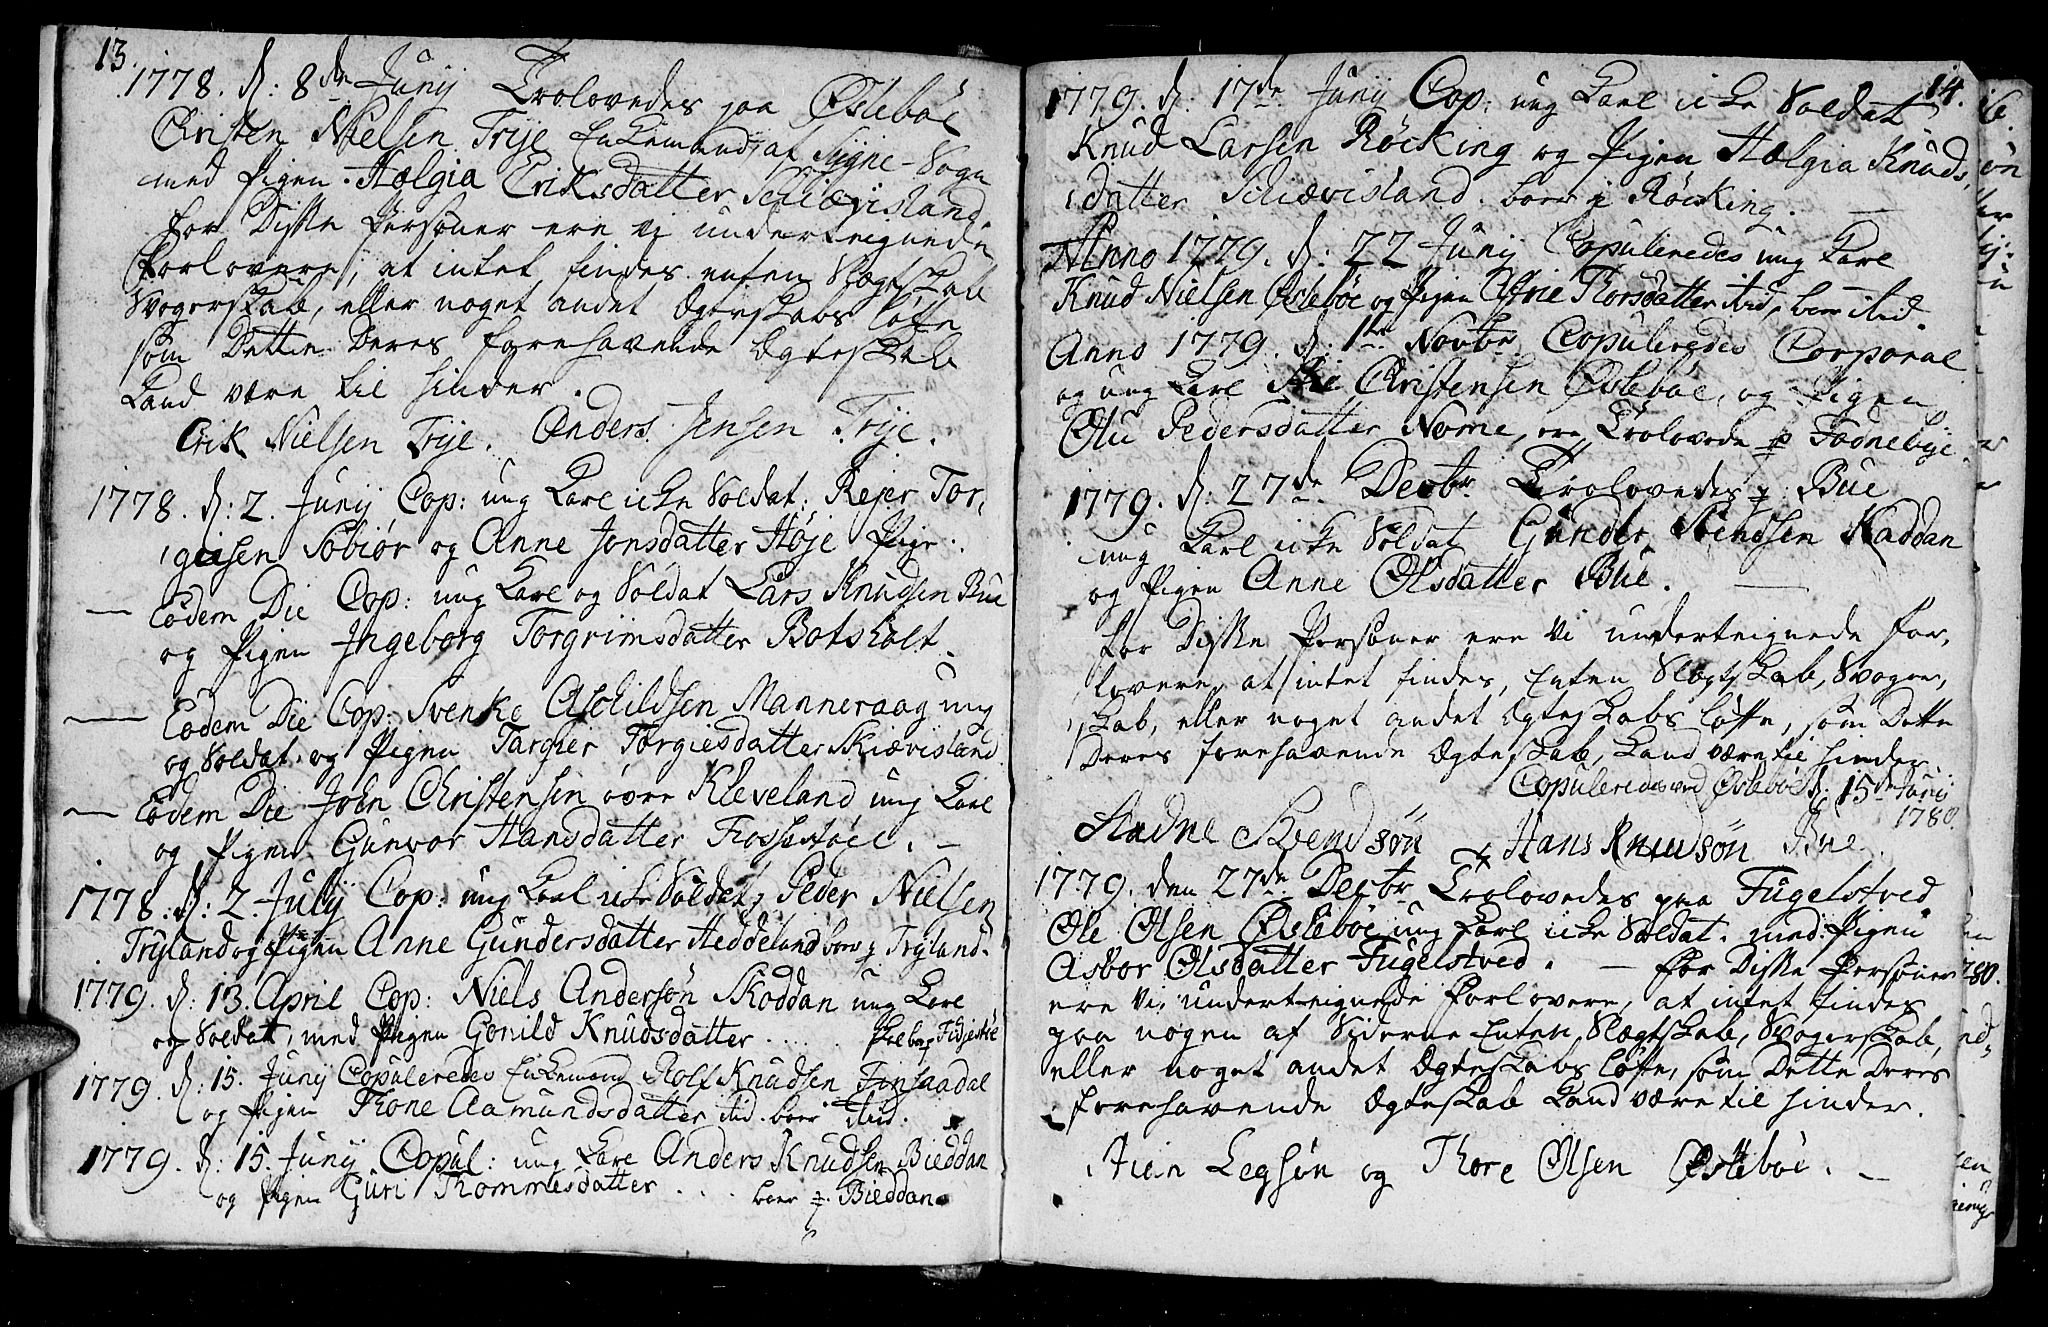 13.
1778. d: 8de Junij Trolovedes paa Øslebøe
Christen Nielsen Trije Enkemand, af Siigne-Sogn
med Pigen Hælgia Eriksdatter Schiævisland.
for Disse Personer ere Vj underteignede
Forlovere, at intet findes enten Slægtskab
Svogerskab, eller noget andet Ægteskabs Løfte
som Dette Deres forehavende Ægteskab
kand være til hinder.
Erik Nielsen Trije. Anders Jensen Trije.
1778. d: 2. Junij Cop: ung Karl icke Soldat, Rejer Tor,
giusen Sobiør og Anne Jonsdatter Høje Pige.
— Eodem Die Cop: ung Karl og Soldat Lars Knudsen Bue
og Pigen Ingeborg Torgrimsdatter Botsholt.
— Eodem Die Cop: Svenke Aschildsen Manneraag ung
og Soldat. og Pigen Targier Torgiesdatter Skiævisland
— Eodem Die John Christensen øvre Kleveland ung Karl
og Pigen Gunvor Hansdatter Fossestøel. —
1778. d: 2. Julij Cop: ung Karl icke Soldat, Peder Nielsen
Tryland og Pigen Anne Gundersdatter Heddeland boer p Tryland.
1779. d: 13. April Cop: Niels Andersøn Skoddan ung Karl
og Soldat, med Pigen Gonild Knudsdatter . . . . . Fidjestøe
1779. d: 15. Junij Copuleredes Enkemand Rolf Knudsen Finsaadal
og Pigen Thone Aamundsdatter ibid. boer ibid.
1779. d: 15. Junij Copul: ung Karl Anders Knudsen Bieddan
og Pigen Guri Thommesdatter . . . . boer p Bieddan.
14.
1779. d. 17de Junij Cop: ung Karl icke Soldat
Knud Larsen Røcking og Pigen Hælgia Knuds,
datter Schiævisland. boer p Røcking. —
Anno 1779. d: 22 Junij Copuleredes ung Karl
Knud Nielsen Øslebøe og Pigen Asrie Thorsdatter ibid, boer ibid.
Anno 1779. d. 1te Novbr Copuleredes Corporal
og ung Karl Christensen Øslebøe, og Pigen
Olu Pedersdatter Nome, ere Trolovede p Fodnebye.
1779. d: 27de Decbr Trolovedes p Bue
ung Karl icke Soldat Gunder Svendsen Kaddan
og Pigen Anne Olsdatter Bue. —
for Disse Personer ere Vi underteignede for,
lovere, at intet findes, Enten Slægtskab, Svoger,
skab, eller noget andet Ægteskabs Løfte, som Dette
Deres forehavende Ægteskab, kand være til hinder.
Copuleredes ved Øslebøe d. 15de Junij
1780.
Stadne Svendsøn Hans Knudsøn Bue.
1779. den 27de Decbr Trolovedes paa Fugelstved
Ole Olsen Øslebøe ung Karl icke Soldat. med Pigen
Asbor Olsdatter Fugelstved. — for Disse Personer
ere Vi, underteignede Forlovere, at intet findes
paa nogen af Siderne Enten, Slægtskab, Svogerskab,
eller noget andet Ægteskabs Løfte, som Dette Deres
forehavende Ægteskab kand være til hinder.
Legsøn og Thore Olsen Øslebøe. —